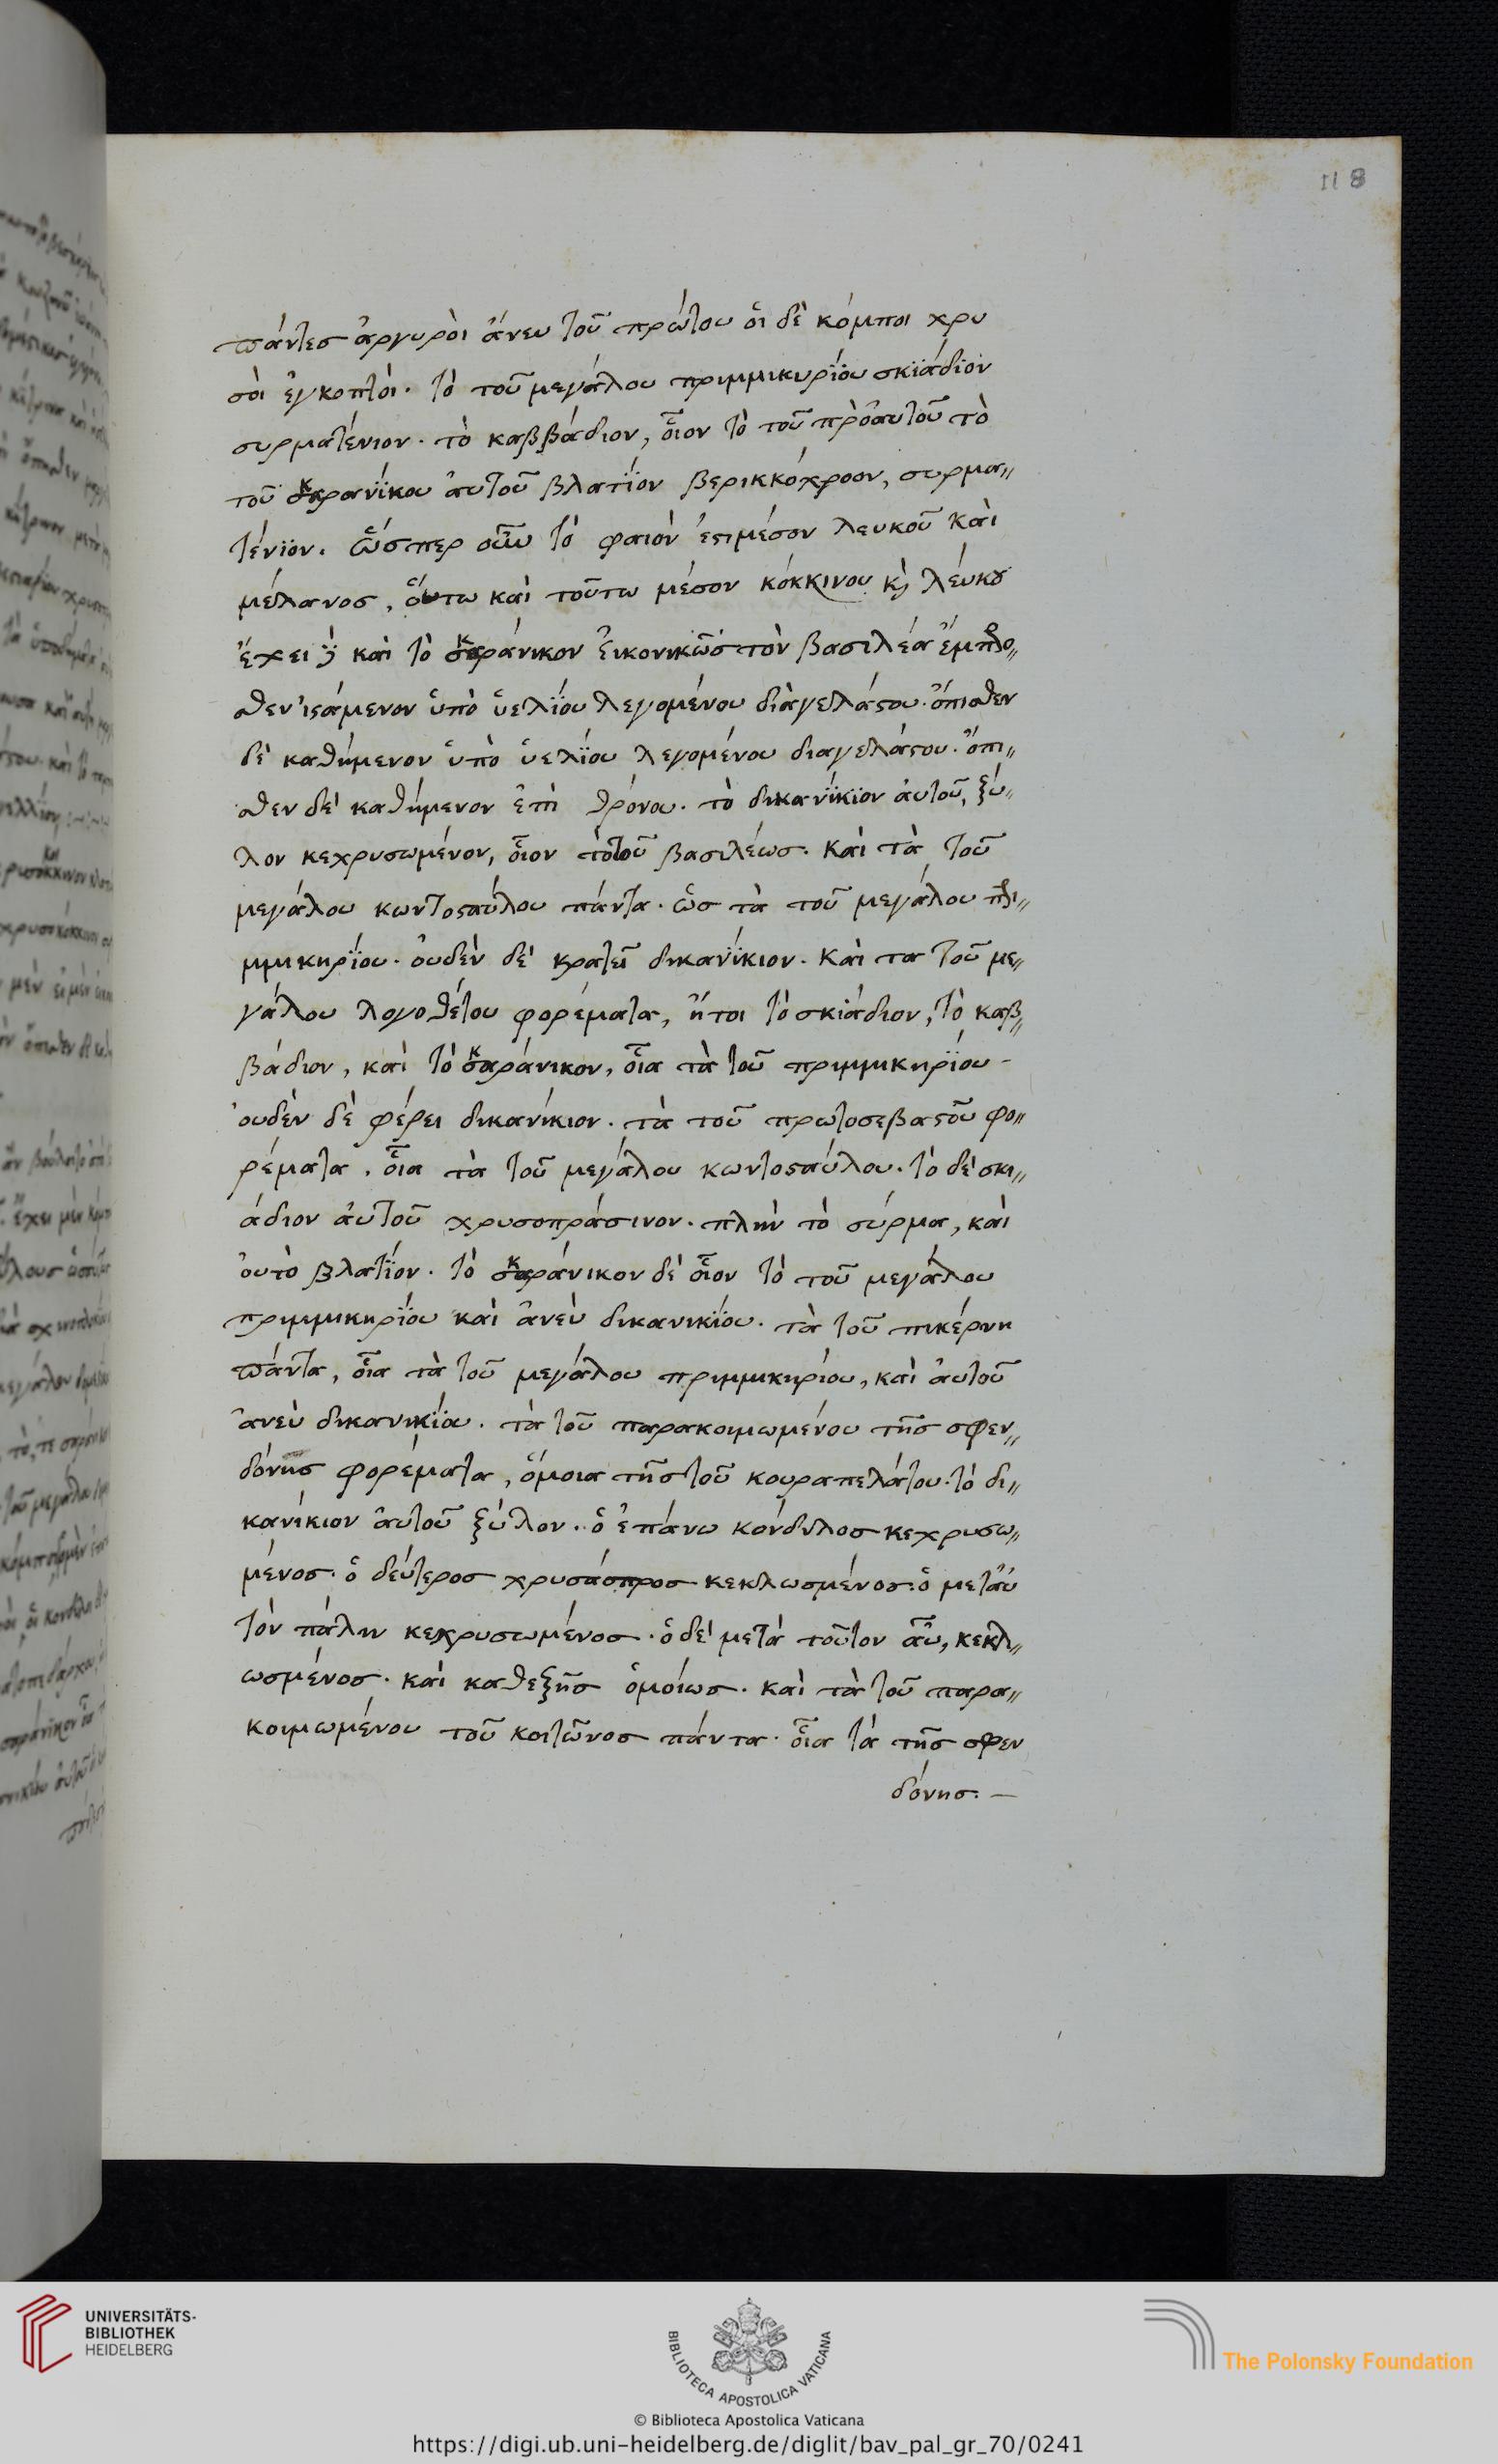 118
πάντες ἀργυρὸι ἄνευ τοῦ πρώτου ὁι δὲ κόμποι χρυ
σὸι ἐγκοπτόι. τὸ τοῦ μεγάλου πριμμικυρΐου σκϊάδϊον
συρματένιον. τὸ καββάδιον, οἷον τὸ τοῦ πρὸ ἀυτοῦ τὸ
τοῦ σκαρανΐκου ἀυτοῦ βλατΐον βερικκόχροον, συρμα〃
τένϊον. ὥσπερ οὖν τὸ φαιὸν ἐστι μέσον λευκοῦ καὶ
μέλανος, ὅυτω καὶ τοῦτω μέσον κόκκινου κ̀ λέυκȣ
ἔχει ϋ καὶ τὸ σκαράνικον ἐικονικῶς τὸν βασιλέα ἔμπρο〃
σθεν ἱϛάμενον ὑπὸ ὑελΐου λεγομένου διὰγελάϛου. ὄπισθεν
δὲ καθήμενον ὑπὸ ὑελΐου λεγομένου διαγελάϛου. ὄπι〃
σθεν δὲ καθήμενον ἐπὶ θρόνου. τὸ δικανΐκϊον ἀυτοῦ, ξύ〃
λον κεχρυσωμένον, οἷον τὸ τοῦ βασιλέως. καὶ τὰ τοῦ
μεγάλου κωντοϛαύλου πάντα. ὡς τὰ τοῦ μεγάλου πρι〃
μμικηρΐου. ὀυδὲν δὲ κρατεῖ δικανΐκιον. καὶ τα τοῦ με〃
γάλου λογοθέτου φορέματα, ἤτοι τὸ σκιάδιον, τὸ καβ〃
βάδιον, καὶ τὸ σκαράνικον, οἷα τὰ τοῦ πριμμικηρΐου -
ὀυδὲν δὲ φέρει δικανίκιον. τὰ τοῦ πρωτοσεβαϛοῦ φο〃
ρέματα. οἷα τὰ τοῦ μεγάλου κωντοϛαύλου. τὸ δὲ σκι〃
άδιον ἀυτοῦ χρυσοπράσινον. πλὴν τὸ σύρμα, καὶ
ὀυτὸ βλατΐον. τὸ σκαράνικον δὲ οἷον τὸ τοῦ μεγάλου
πριμμικηρΐου καὶ ἀνεὺ δικανικΐου. τὰ τοῦ πικέρνη
πάντα, οἷα τὰ τοῦ μεγάλου πριμμικηρίου, καὶ ἀυτοῦ
ἀνεὺ δικανικΐου. τὰ τοῦ παρακοιμωμένου τῆς σφεν〃
δόνης φορέματα, ὅμοια τῆς τοῦ κουραπελάτου. τὸ δι〃
κανίκιον ἀυτοῦ ξύλον. ὁ ἐπάνω κόνδυλος κεχρυσω〃
μένος. ὁ δεύτερος χρυσάσπρος κεκλωσμένος. ὁ μετ ἀυ
τὸν πάλιν κεχρυσωμένος. ὁ δὲ μετὰ τοῦτον αὖ, κεκλι〃
ωσμένος. καὶ καθεξῆς ὁμοίως. καὶ τὰ τοῦ παρα〃
κοιμωμένου τοῦ κοιτῶνος πάντα. οἷα τὰ τῆς σφεν
δόνης. —
UNIVERSITÄTS-
BIBLIOTHEK
HEIDELBERG
BIBLIOTECA APOSTOLICA VATICANA
The Polonsky Foundation
© Biblioteca Apostolica Vaticana
https://digi.ub.uni-heidelberg.de/diglit/bav_pal_gr_70/0241